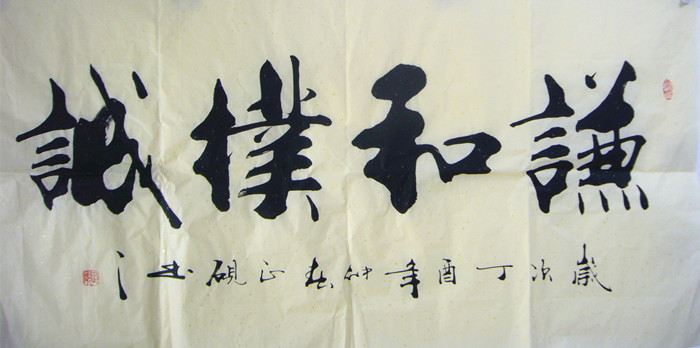 謙和樸誠
歲次丁酉年仲春正硯書之